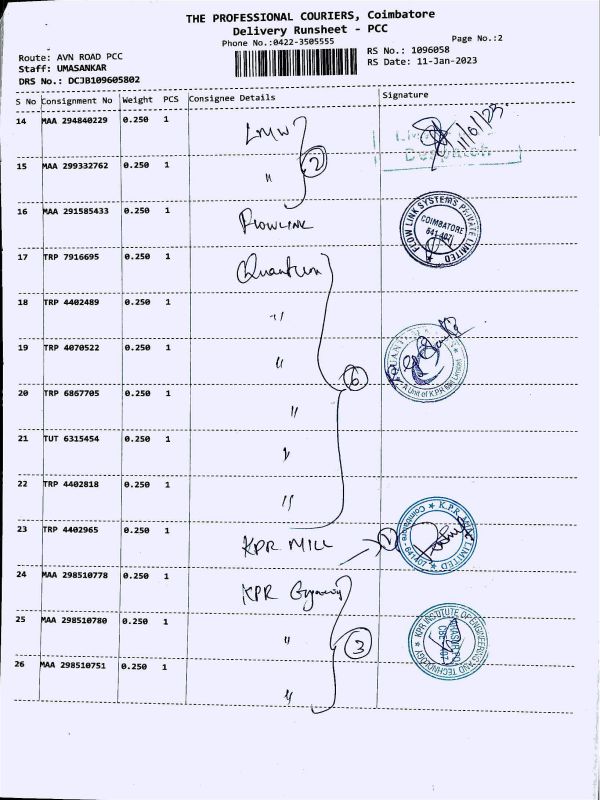 THE PROFESSIONAL COURIERS, Coimbatore
Delivery Runsheet - PCC
Phone No.:0422-3505555
Page No.:2
Route: AVN ROAD PCC
RS No.: 1096058
Staff: UMASANKAR
RS Date: 11-Jan-2023
DRS No.: DCJB109605802
S No Consignment No Weight PCS Consignee Details Signature
14 MAA 294840229 0.250 1 LMW
15 MAA 299332762 0.250 1 " 2
Despatch
16 MAA 291585433 0.250 1 Flowlink
FLOW LINK SYSTEMS PRIVATE LIMITED
COIMBATORE
641 407
17 TRP 7916695 0.250 1 Quantum
18 TRP 4402489 0.250 1 "
19 TRP 4070522 0.250 1 "
A Unit of K.P.R Mill Limited
20 TRP 6867705 0.250 1 " 6
21 TUT 6315454 0.250 1 "
22 TRP 4402818 0.250 1 "
23 TRP 4402965 0.250 1 KPR MILL
K.P.R. MILL LIMITED
Coimbatore - 641 407
24 MAA 298510778 0.250 1 KPR
25 MAA 298510780 0.250 1 " 3
KPR INSTITUTE OF ENGINEERING AND TECHNOLOGY
26 MAA 298510751 0.250 1 "